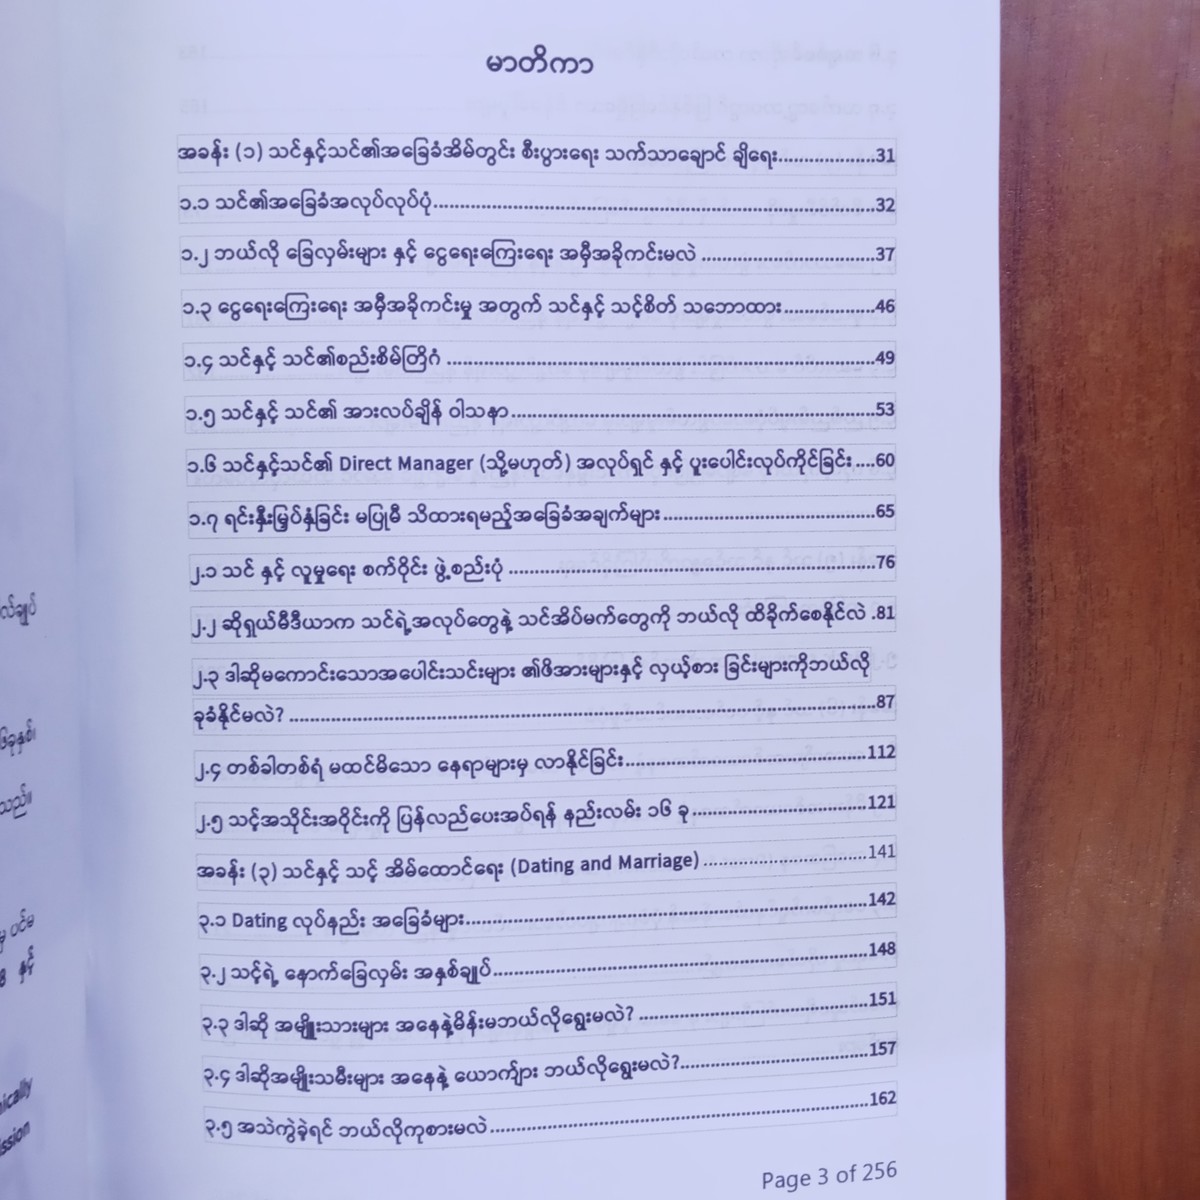 မာတိကာ
အခန်း (၁) သင်နှင့်သင်၏အခြေခံအိမ်တွင်း စီးပွားရေး သက်သာချောင် ချိရေး..................31
၁.၁ သင်၏အခြေခံအလုပ်လုပ်ပုံ..................32
၁.၂ ဘယ်လို ခြေလှမ်းများ နှင့် ငွေရေးကြေးရေး အမှီအခိုကင်းမလဲ ..................37
၁.၃ ငွေရေးကြေးရေး အမှီအခိုကင်းမှု အတွက် သင်နှင့် သင့်စိတ် သဘောထား..................46
၁.၄ သင်နှင့် သင်၏စည်းစိမ်တြိဂံ ..................49
၁.၅ သင်နှင့် သင်၏ အားလပ်ချိန် ဝါသနာ..................53
၁.၆ သင်နှင့်သင်၏ Direct Manager (သို့မဟုတ်) အလုပ်ရှင် နှင့် ပူးပေါင်းလုပ်ကိုင်ခြင်း....60
၁.၇ ရင်းနှီးမြှပ်နှံခြင်း မပြုမီ သိထားရမည့်အခြေခံအချက်များ..................65
၂.၁ သင် နှင့် လူမှုရေး စက်ဝိုင်း ဖွဲ့စည်းပုံ ..................76
၂.၂ ဆိုရှယ်မီဒီယာက သင်ရဲ့အလုပ်တွေနဲ့ သင်အိပ်မက်တွေကို ဘယ်လို ထိခိုက်စေနိုင်လဲ .81
၂.၃ ဒါဆိုမကောင်းသောအပေါင်းသင်းများ ၏ဖိအားများနှင့် လှယ့်စား ခြင်းများကိုဘယ်လို
ခုခံနိုင်မလဲ? ..................87
၂.၄ တစ်ခါတစ်ရံ မထင်မိသော နေရာများမှ လာနိုင်ခြင်း..................112
၂.၅ သင့်အသိုင်းအဝိုင်းကို ပြန်လည်ပေးအပ်ရန် နည်းလမ်း ၁၆ ခု..................121
အခန်း (၃) သင်နှင့် သင့် အိမ်ထောင်ရေး (Dating and Marriage) ..................141
၃.၁ Dating လုပ်နည်း အခြေခံများ..................142
၃.၂ သင့်ရဲ့ နောက်ခြေလှမ်း အနှစ်ချုပ်..................148
၃.၃ ဒါဆို အမျိုးသားများ အနေနဲ့မိန်းမဘယ်လိုရွေးမလဲ? ..................151
၃.၄ ဒါဆိုအမျိုးသမီးများ အနေနဲ့ ယောက်ျား ဘယ်လိုရွေးမလဲ?..................157
၃.၅ အသဲကွဲခဲ့ရင် ဘယ်လိုကုစားမလဲ..................162
Page 3 of 256